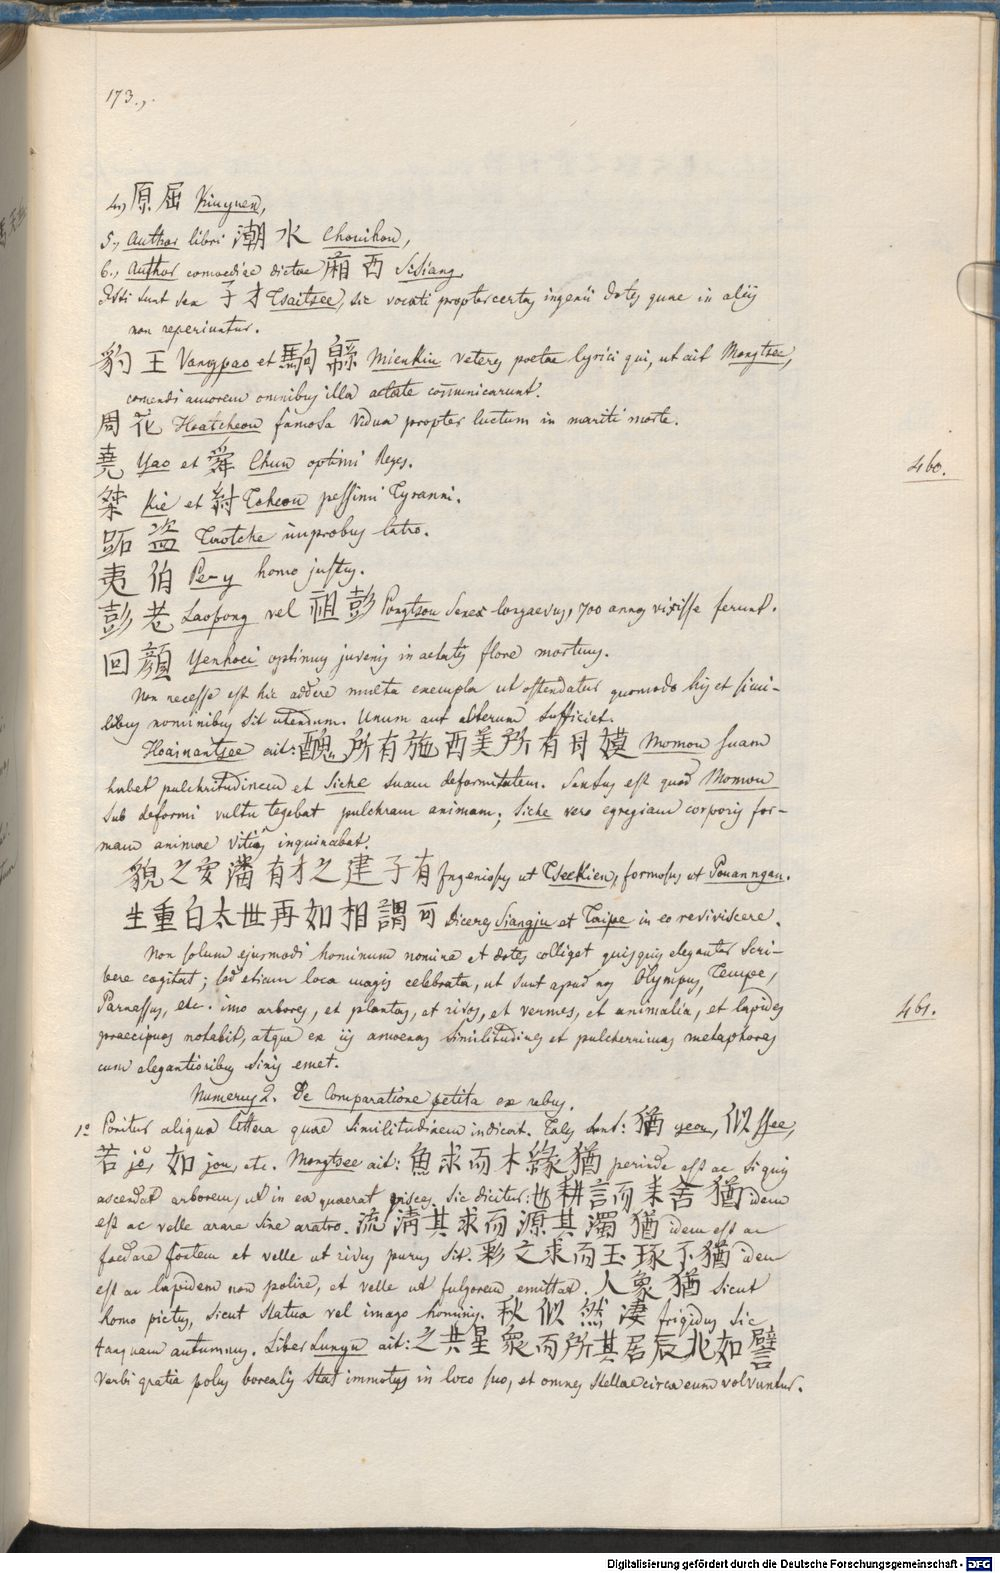 173.,
4., 原 屈 Kiuyuen,
5., Author libri 滸 水 Chouihou,
6., Author comoediae dictae 廂 西 Sisiang,
Isti sunt sex 子 才 Tsaitsee, sic vocati propter certas ingenii dotes quae in aliis
non reperiuntur.
豹 王 Vangpao et 駒 緜 Mienkiu veteres poetae lyrici qui, ut ait Mengtsee,
canendi amorem omnibus illa aetate communicarunt.
周 花 Hoatcheou famosa vidua propter luctum in mariti morte.
堯 Yao et 舜 Chun optimi Reges.
460.
桀 Kie et 紂 Tcheou pessimi Tyranni.
跖 盜 Taotche improbus latro.
夷 伯 Pe-y homo justus.
彭 老 Laopong vel 祖 彭 Pongtsou senex longaevus, 700 annos vixisse ferunt.
回 顏 Yenhoei optimus juvenis in aetatis flore mortuus.
Non necesse est hic addere multa exempla ut ostendatur quomodo his et simi-
libus nominibus sit utendum. Unum aut alterum sufficiet.
Hoainantsee ait: 醜 所 有 施 西 美 所 有 母 嫫 Momou suam
habet pulchritudinem et Siche suam deformitatem. Sensus est quod Momou
sub deformi vultu tegebat pulchram animam; Siche vero egregiam corporis for-
mam animae vitiis inquinabat.
貌 之 安 潘 有 才 之 建 子 有 Ingeniosus ut Tseekien, formosus ut Pouanngan.
生 重 白 太 世 再 如 相 謂 可 Diceres Siangju et Taipe in eo reviviscere.
Non solum ejusmodi hominum nomina et dotes colliget quisquis eleganter scri-
bere cogitat; sed etiam loca magis celebrata, ut sunt apud nos Olympus, Tempe,
Parnassus, etc. imo arbores, et plantas, et rivos, et vermes, et animalia, et lapides
461.
praecipuos notabit, atque ex iis amoenas similitudines et pulcherrimas metaphoras
cum elegantioribus Sinis emet.
Numerus 2. De Comparatione petita ex rebus.
1º Ponitur aliqua littera quae similitudinem indicat. Tales sunt: 猶 yeou, 似 ssee,
若 jo, 如 jou, etc. Mengtsee ait: 魚 求 而 木 緣 猶 perinde est ac si quis
ascendat arborem, ut in ea quaerat pisces, sic dicitur: 也 耕 言 而 耒 舍 猶 idem
est ac velle arare sine aratro. 流 清 其 求 而 源 其 濁 猶 idem est ac
foedare fontem et velle ut rivus purus sit. 彩 之 求 而 玉 琢 不 猶 idem
est ac lapidem non polire, et velle ut fulgorem emittat. 人 象 猶 sicut
homo pictus, sicut statua vel imago hominis. 秋 似 然 凄 frigidus sic
tanquam autumnus. Liber Lunyu ait: 之 共 星 衆 而 所 其 居 辰 北 如 譬
Verbi gratia polus borealis stat immotus in loco suo, et omnes stellae circa eum volvuntur.
Digitalisierung gefördert durch die Deutsche Forschungsgemeinschaft - DFG